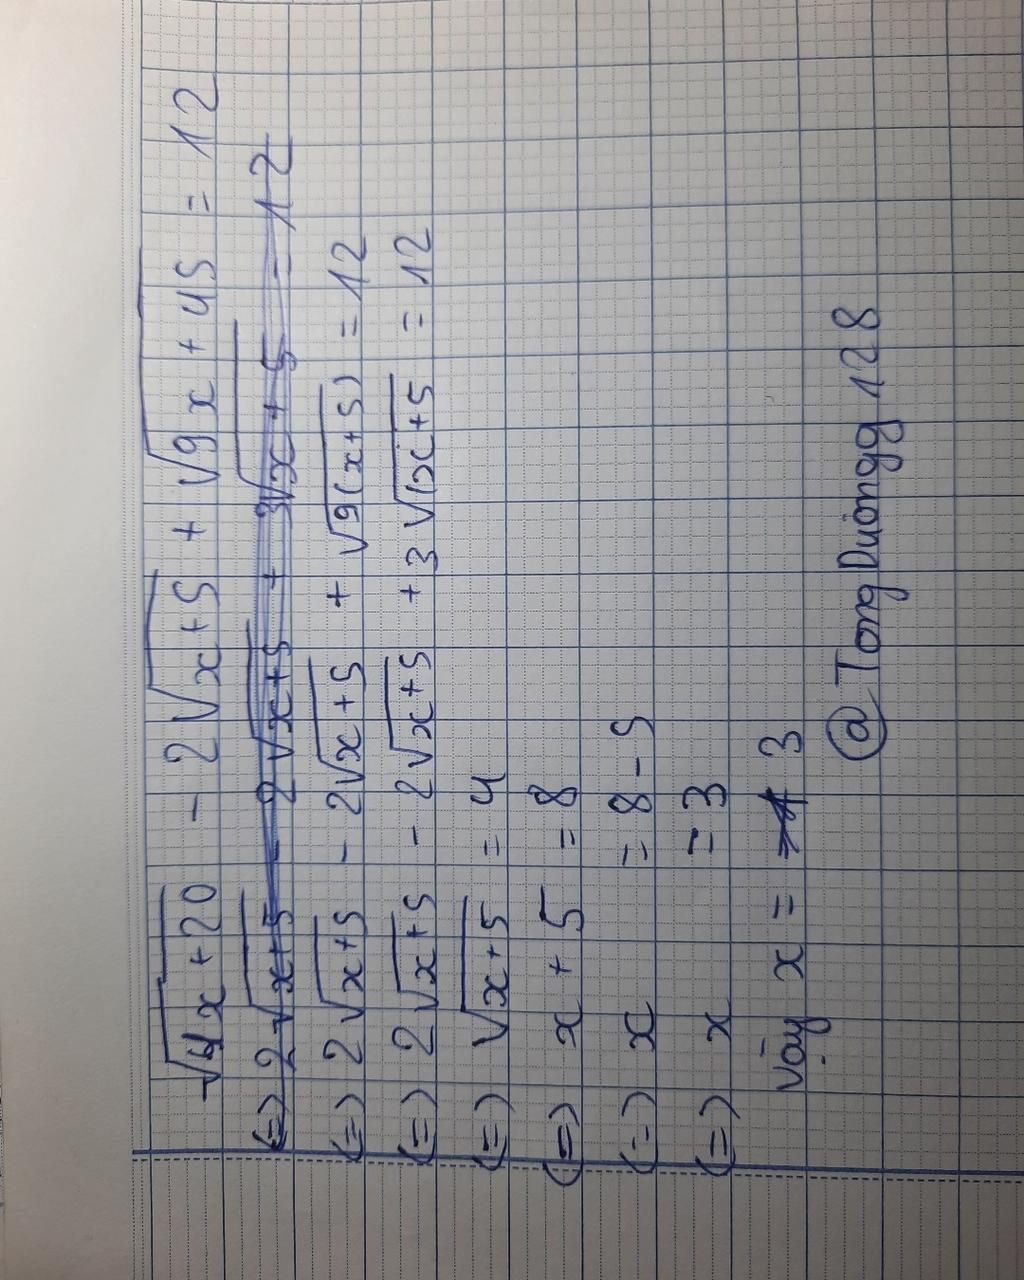 √4x+20 - 2√x+5 + √9x+45 = 12
(=) 2√x+5 - 2√x+5 + 3√x+5 = 12
(=) 2√x+5 - 2√x+5 + √9(x+5) = 12
(=) 2√x+5 - 2√x+5 + 3√(x+5 = 12
(=) √x+5 = 4
(=) x + 5 = 8
(=) x = 8-5
(=) x = 3
Vậy x = 3
@ Tong Duongg 128